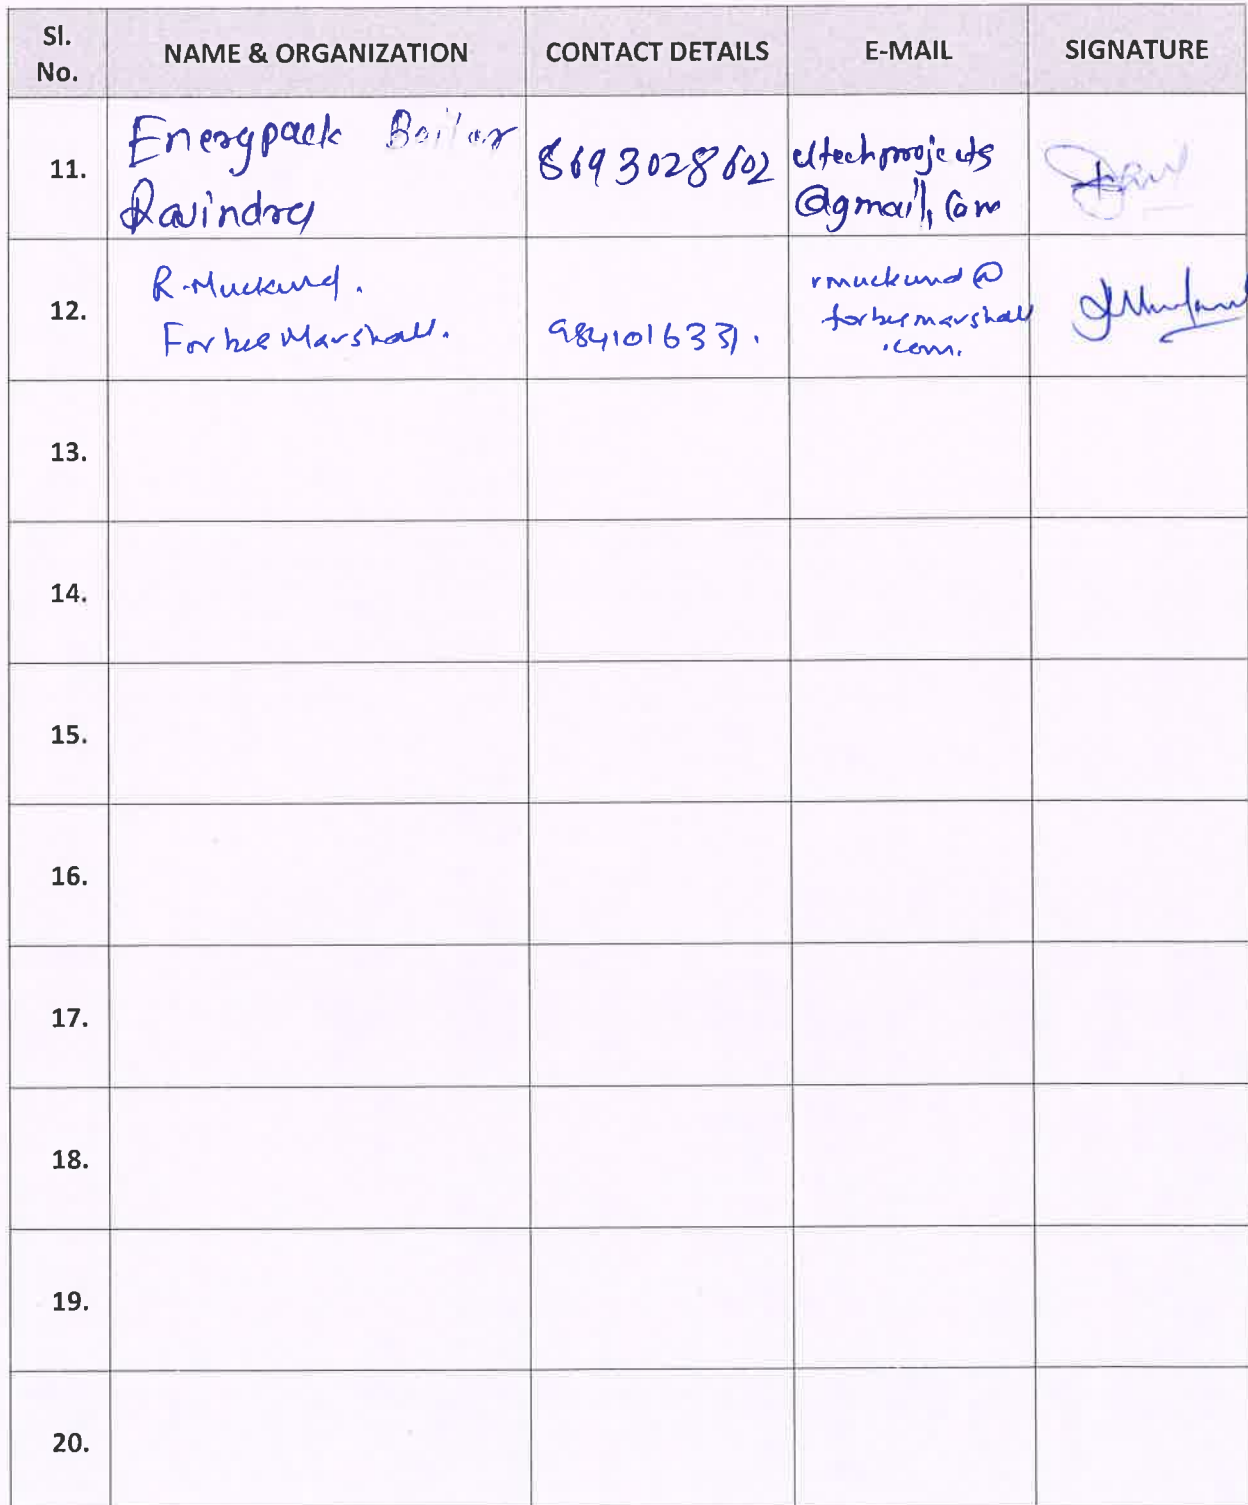 Sl. No. NAME & ORGANIZATION CONTACT DETAILS E-MAIL SIGNATURE
11. Energpack Boiler 8693028602 eltechprojects
Ravindra @gmail.com
12. R. Muckund. rmuckund@
Forbes Marshall. 9841016331. forbesmarshall
.com.
13.
14.
15.
16.
17.
18.
19.
20.